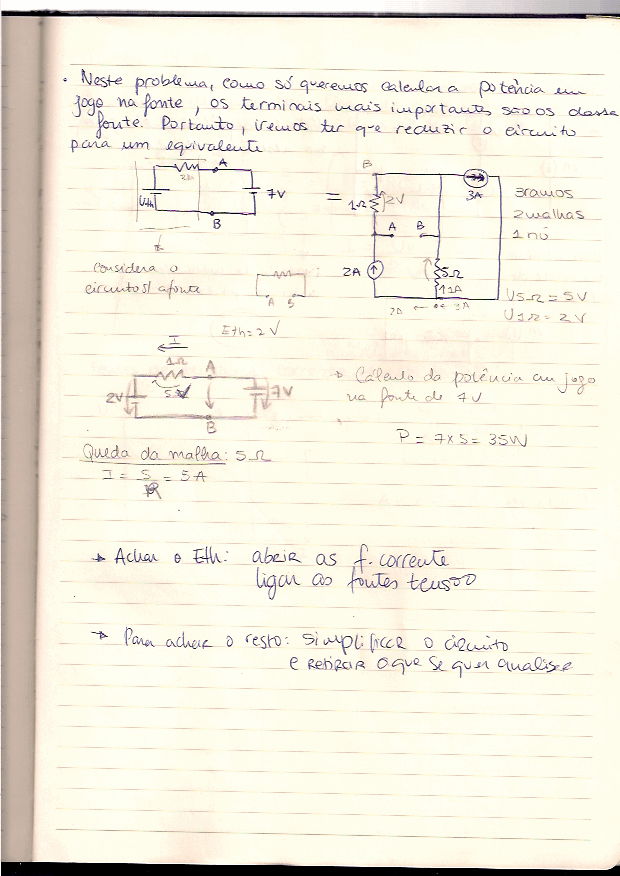 • Neste problema, como só queremos calcular a potência em
jogo na fonte, os terminais mais importantes são os dessa
fonte. Portanto, iremos ter que reduzir o circuito
para um equivalente
A
Uth
7V
B
=
B
1Ω
2V
3A
A B
2A
5Ω
3A
3 ramos
2 malhas
1 nó
U5Ω = 5V
U1Ω = 2V
considera o
circuito s/ a fonte
A
Eth = 2V
I
1Ω
A
2V
7V
B
Queda da malha: 5Ω
I = 5/ = 5A
→ Cálculo da potência em jogo
na fonte de 7V
P = 7x5 = 35W
→ Achar o Eth: abrir as f. corrente
ligar as fontes tensão
→ Para achar o resto: simplificar o circuito
e retirar o que se quer